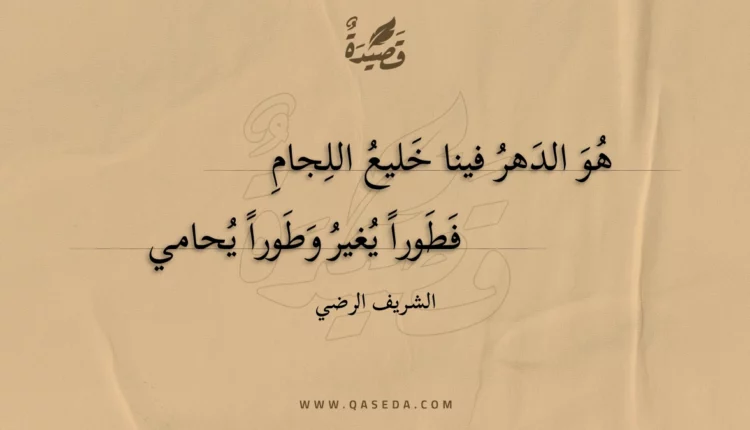 قَصِيدَةٌ
هُوَ الدَهرُ فينا خَليعُ اللِجامِ
فَطَوراً يُغيرُ وَطَوراً يُحامي
الشريف الرضي
WWW.QASEDA.COM